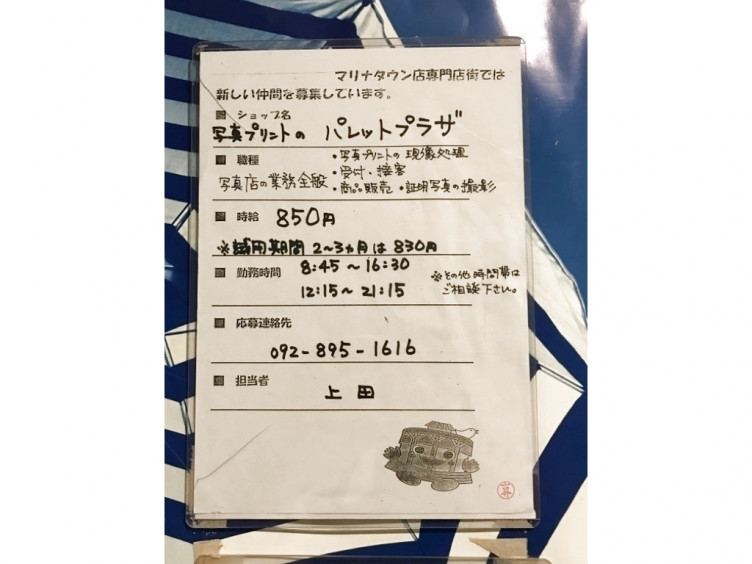 マリナタウン店専門店街では
新しい仲間を募集しています。
■ ショップ名
写真プリントの パレットプラザ
■ 職種
写真店の業務全般
・写真プリントの現像処理
・受付・接客
・商品販売・証明写真の撮影
■ 時給 850円
※試用期間 2~3ヵ月は830円
■ 勤務時間 8:45~16:30
12:15~21:15
※その他時間帯は
ご相談下さい。
■ 応募連絡先
092-895-1616
■ 担当者
上田